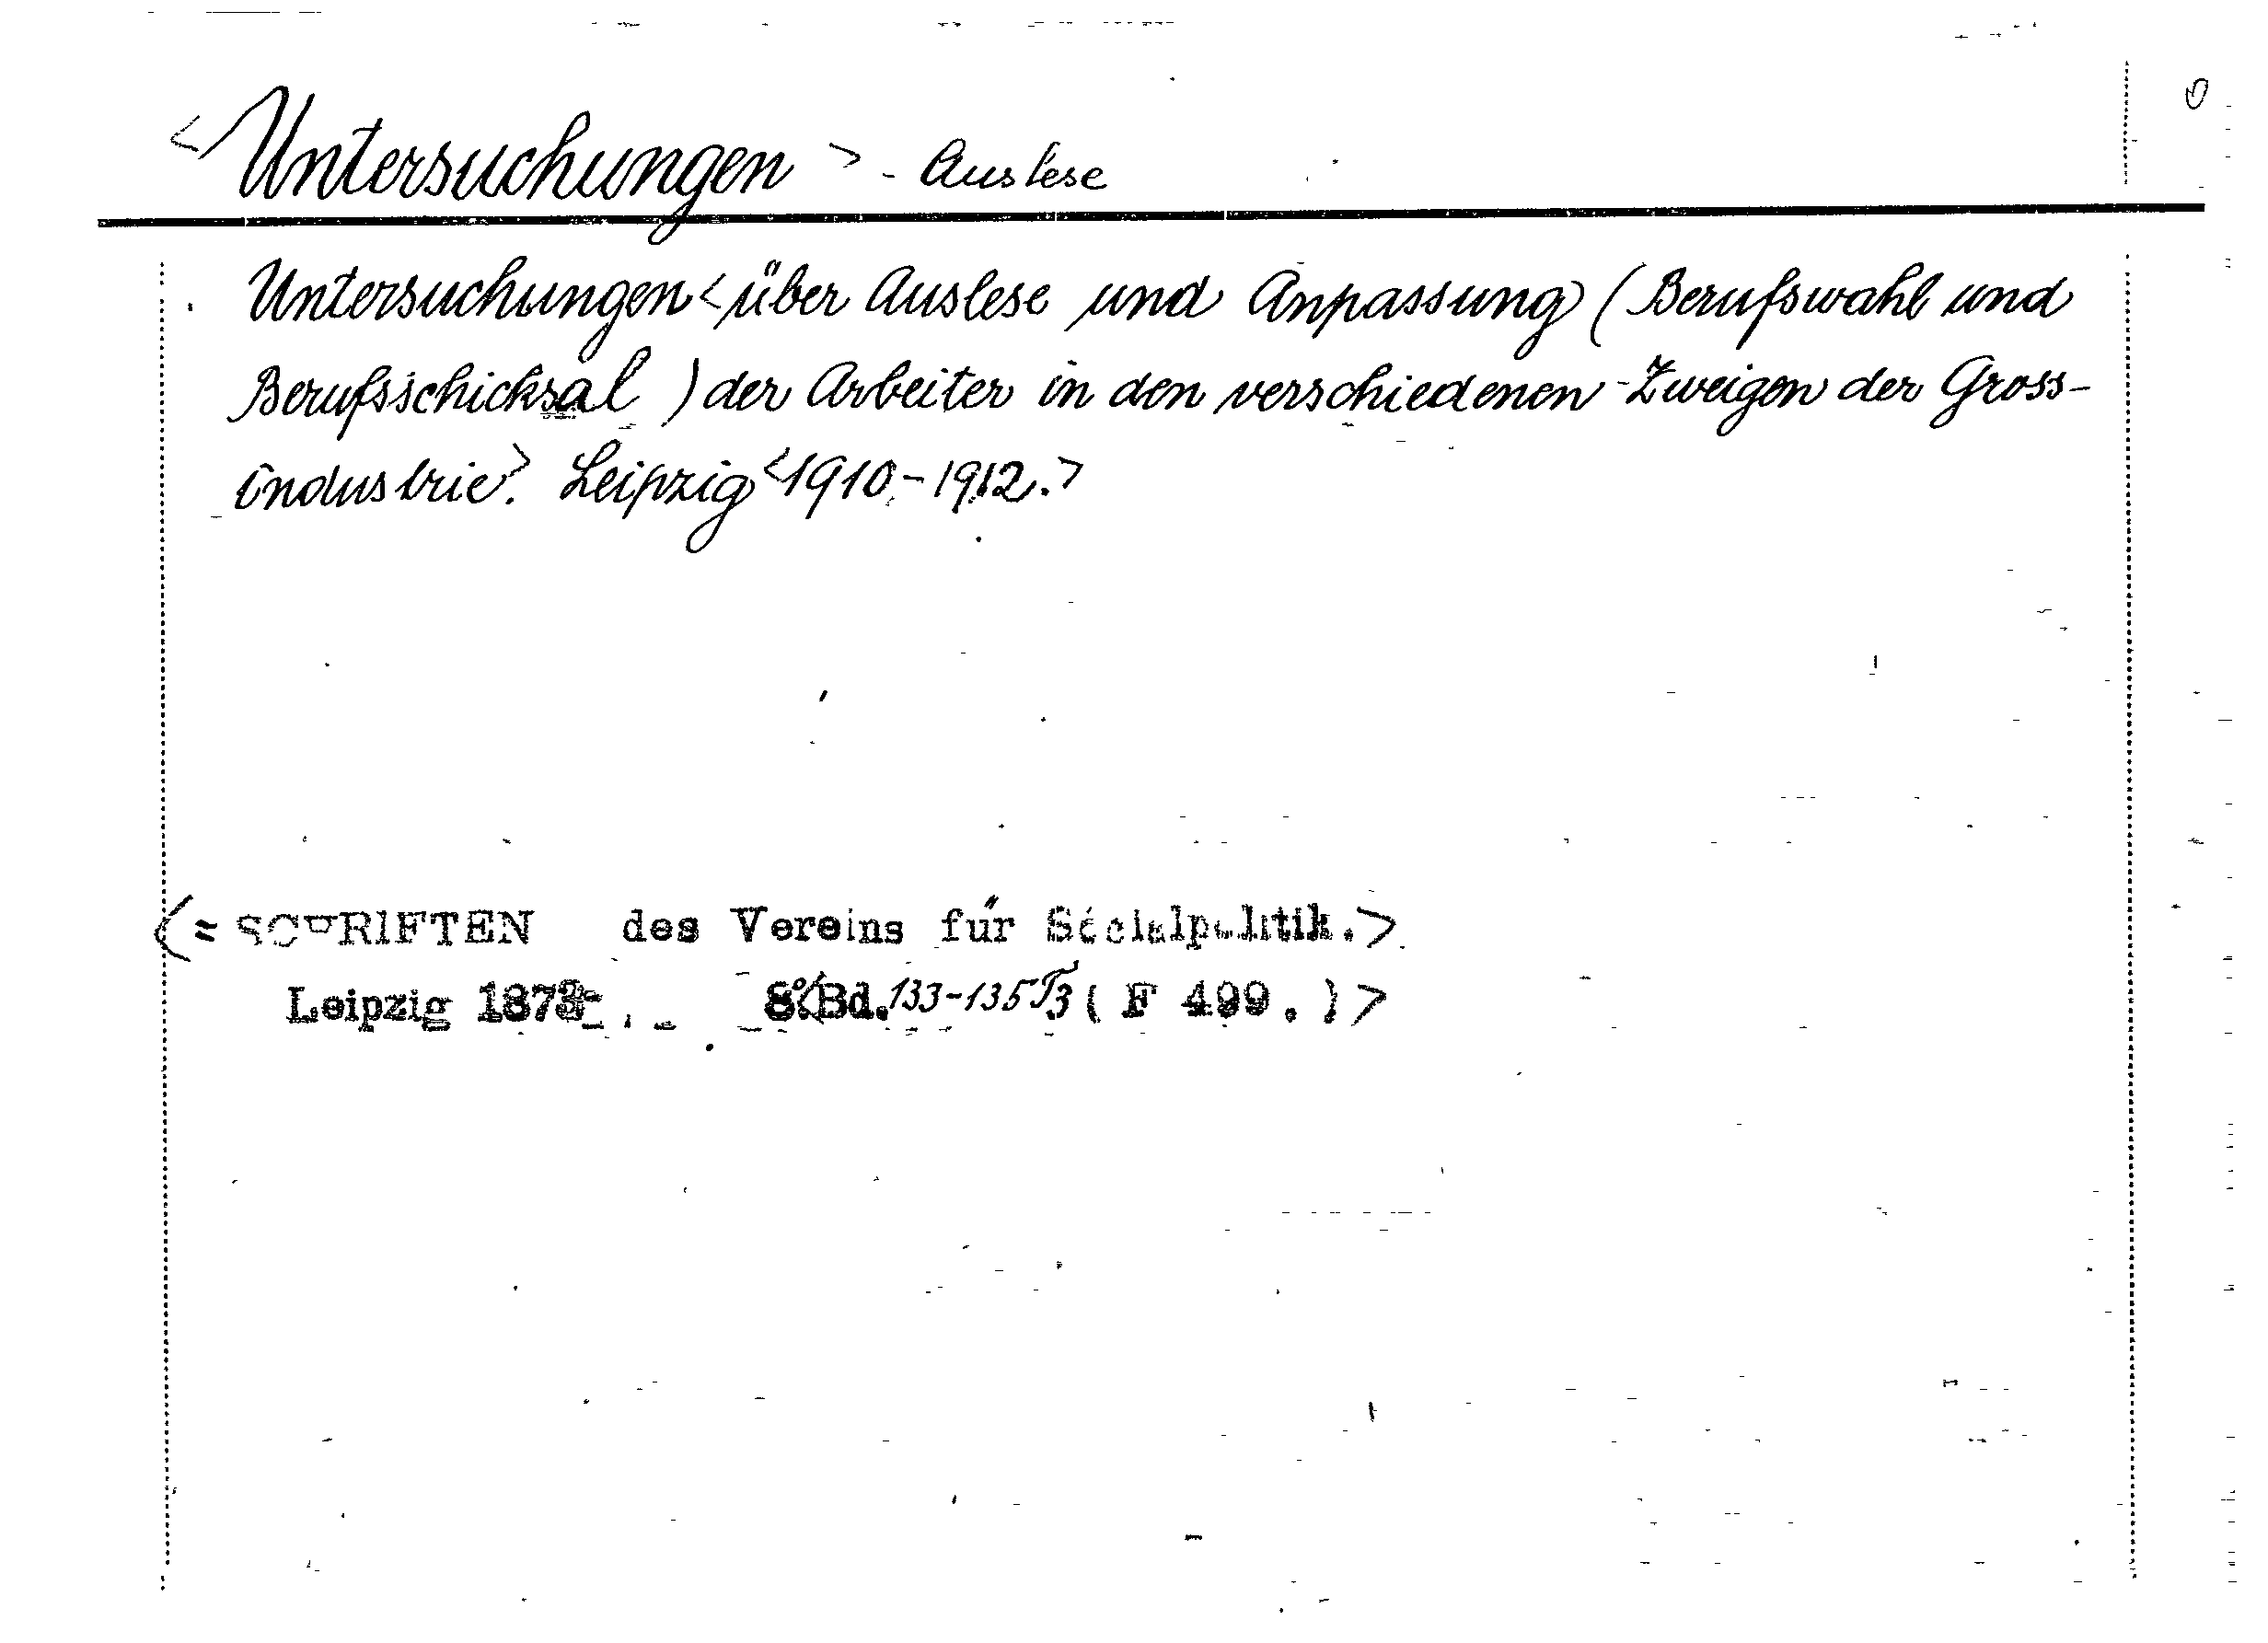 <Untersuchungen> - Auslese
Untersuchungen <über Auslese und Anpassung (Berufswahl und
Berufsschicksal) der Arbeiter in den verschiedenen Zweigen der Gross-
industrie>. Leipzig <1910-1912.>
<= SCHRIFTEN des Vereins für Socialpolitik.>
Leipzig 1873- 8°.<Bd. 133-135 (F 499.)>